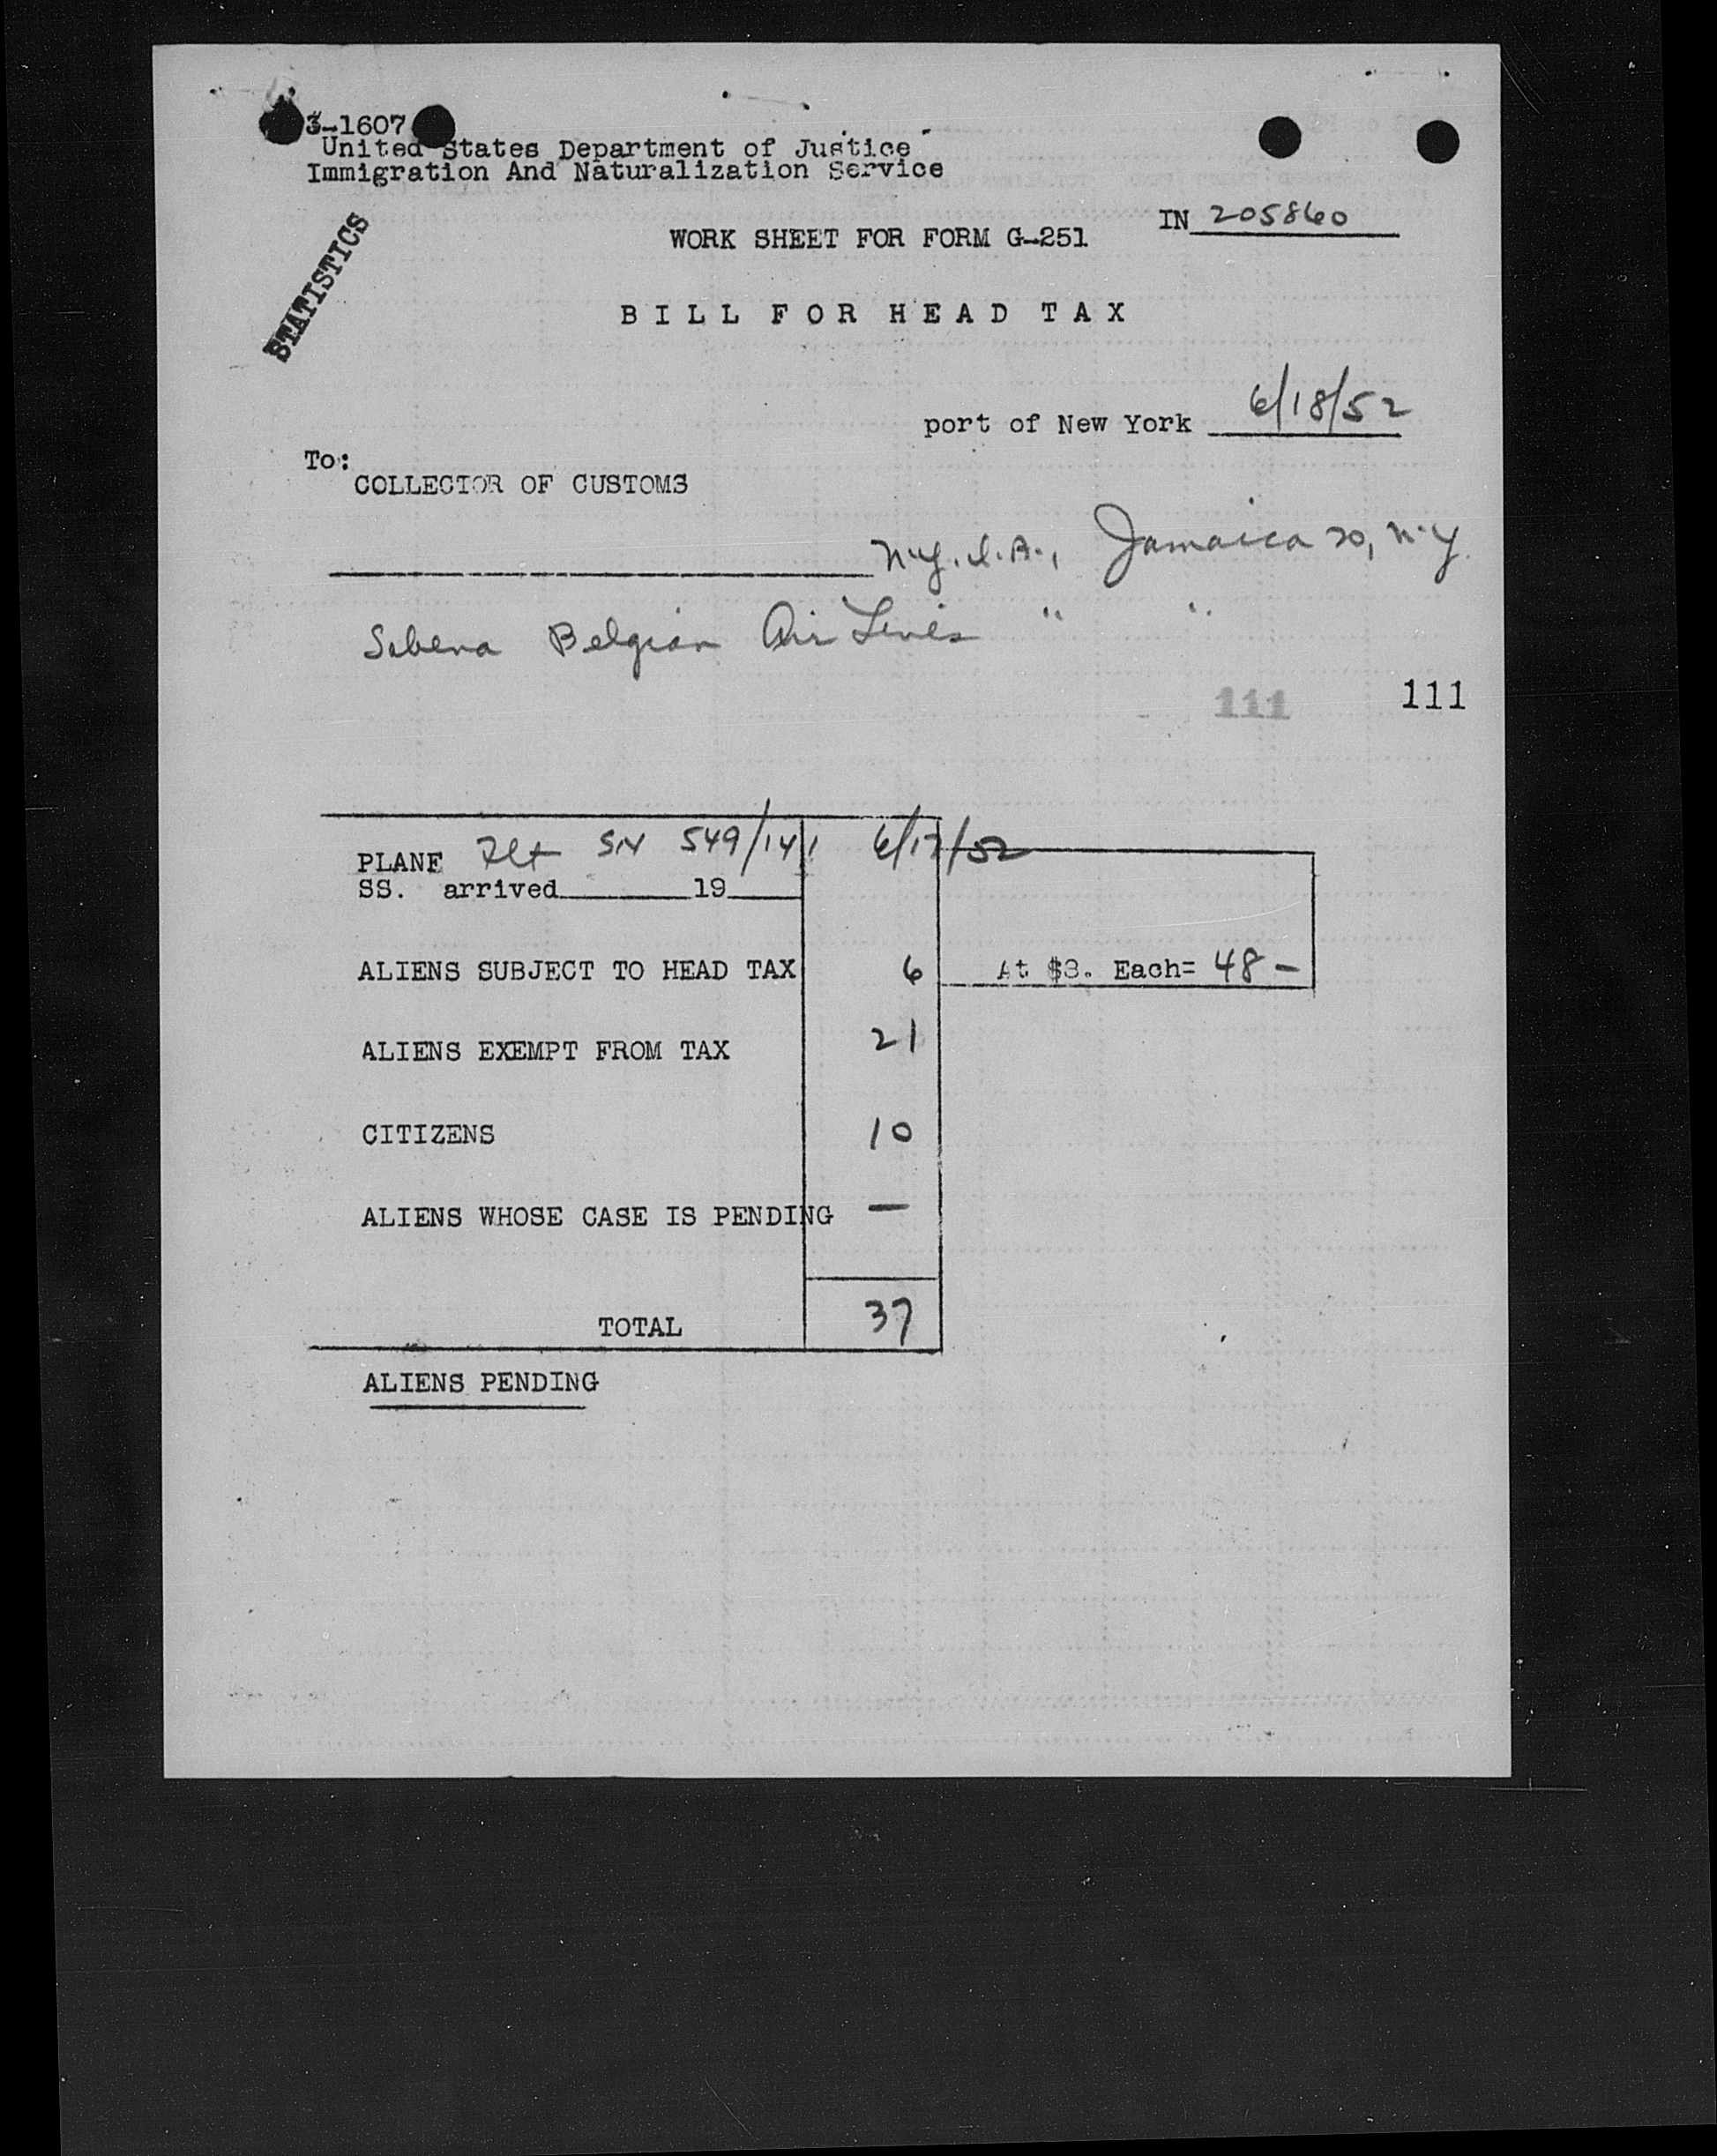 3-1607
United States Department of Justice
Immigration And Naturalization Service
STATISTICS
IN 205860
WORK SHEET FOR FORM G-251
BILL FOR HEAD TAX
port of New York 6/18/52
To:
COLLECTOR OF CUSTOMS
N.Y.I.A., Jamaica 20, N.Y.
Sabena Belgian Air Lines " "
111 111
PLANE Flt SN 549/141 6/17/52
SS. arrived 19
ALIENS SUBJECT TO HEAD TAX 6 At $8. Each= 48 -
ALIENS EXEMPT FROM TAX 21
CITIZENS 10
ALIENS WHOSE CASE IS PENDING —
TOTAL 37
ALIENS PENDING